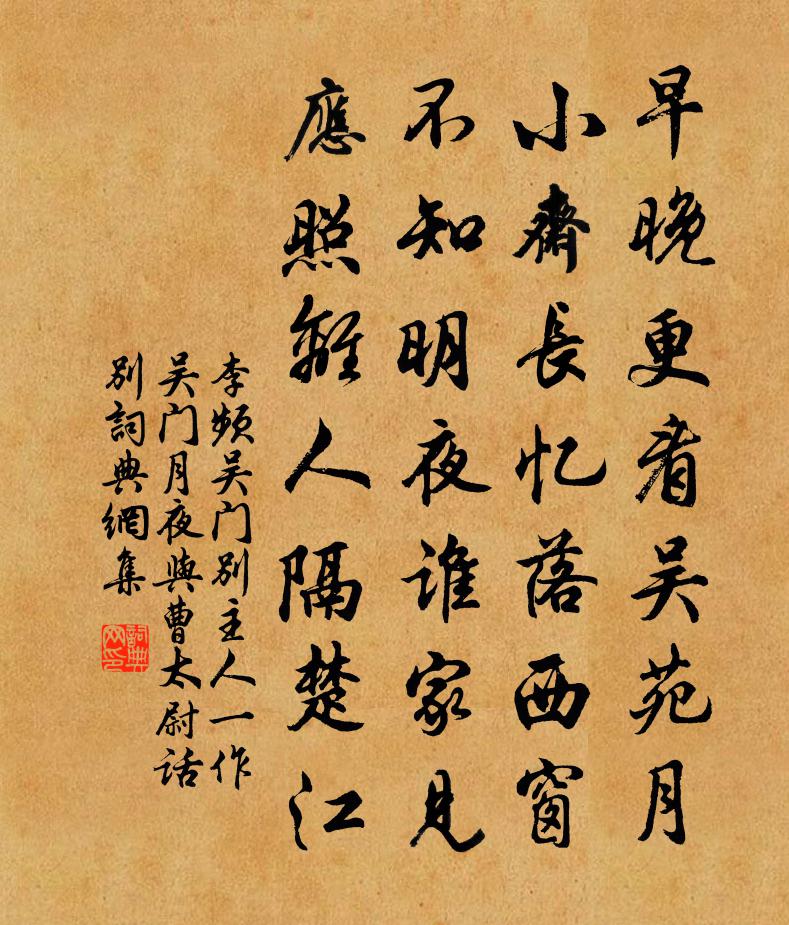 早晚更看吴苑月
小齋長忆落西窗
不知明夜谁家見
應照離人隔楚江
李频吴门别主人一作
吴门月夜與曹太尉话
别詞典網集
詞典網印